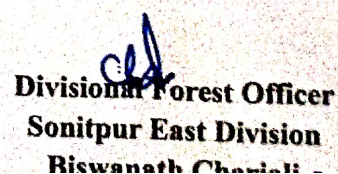 Divisional Forest Officer
Sonitpur East Division
Biswanath Chariali